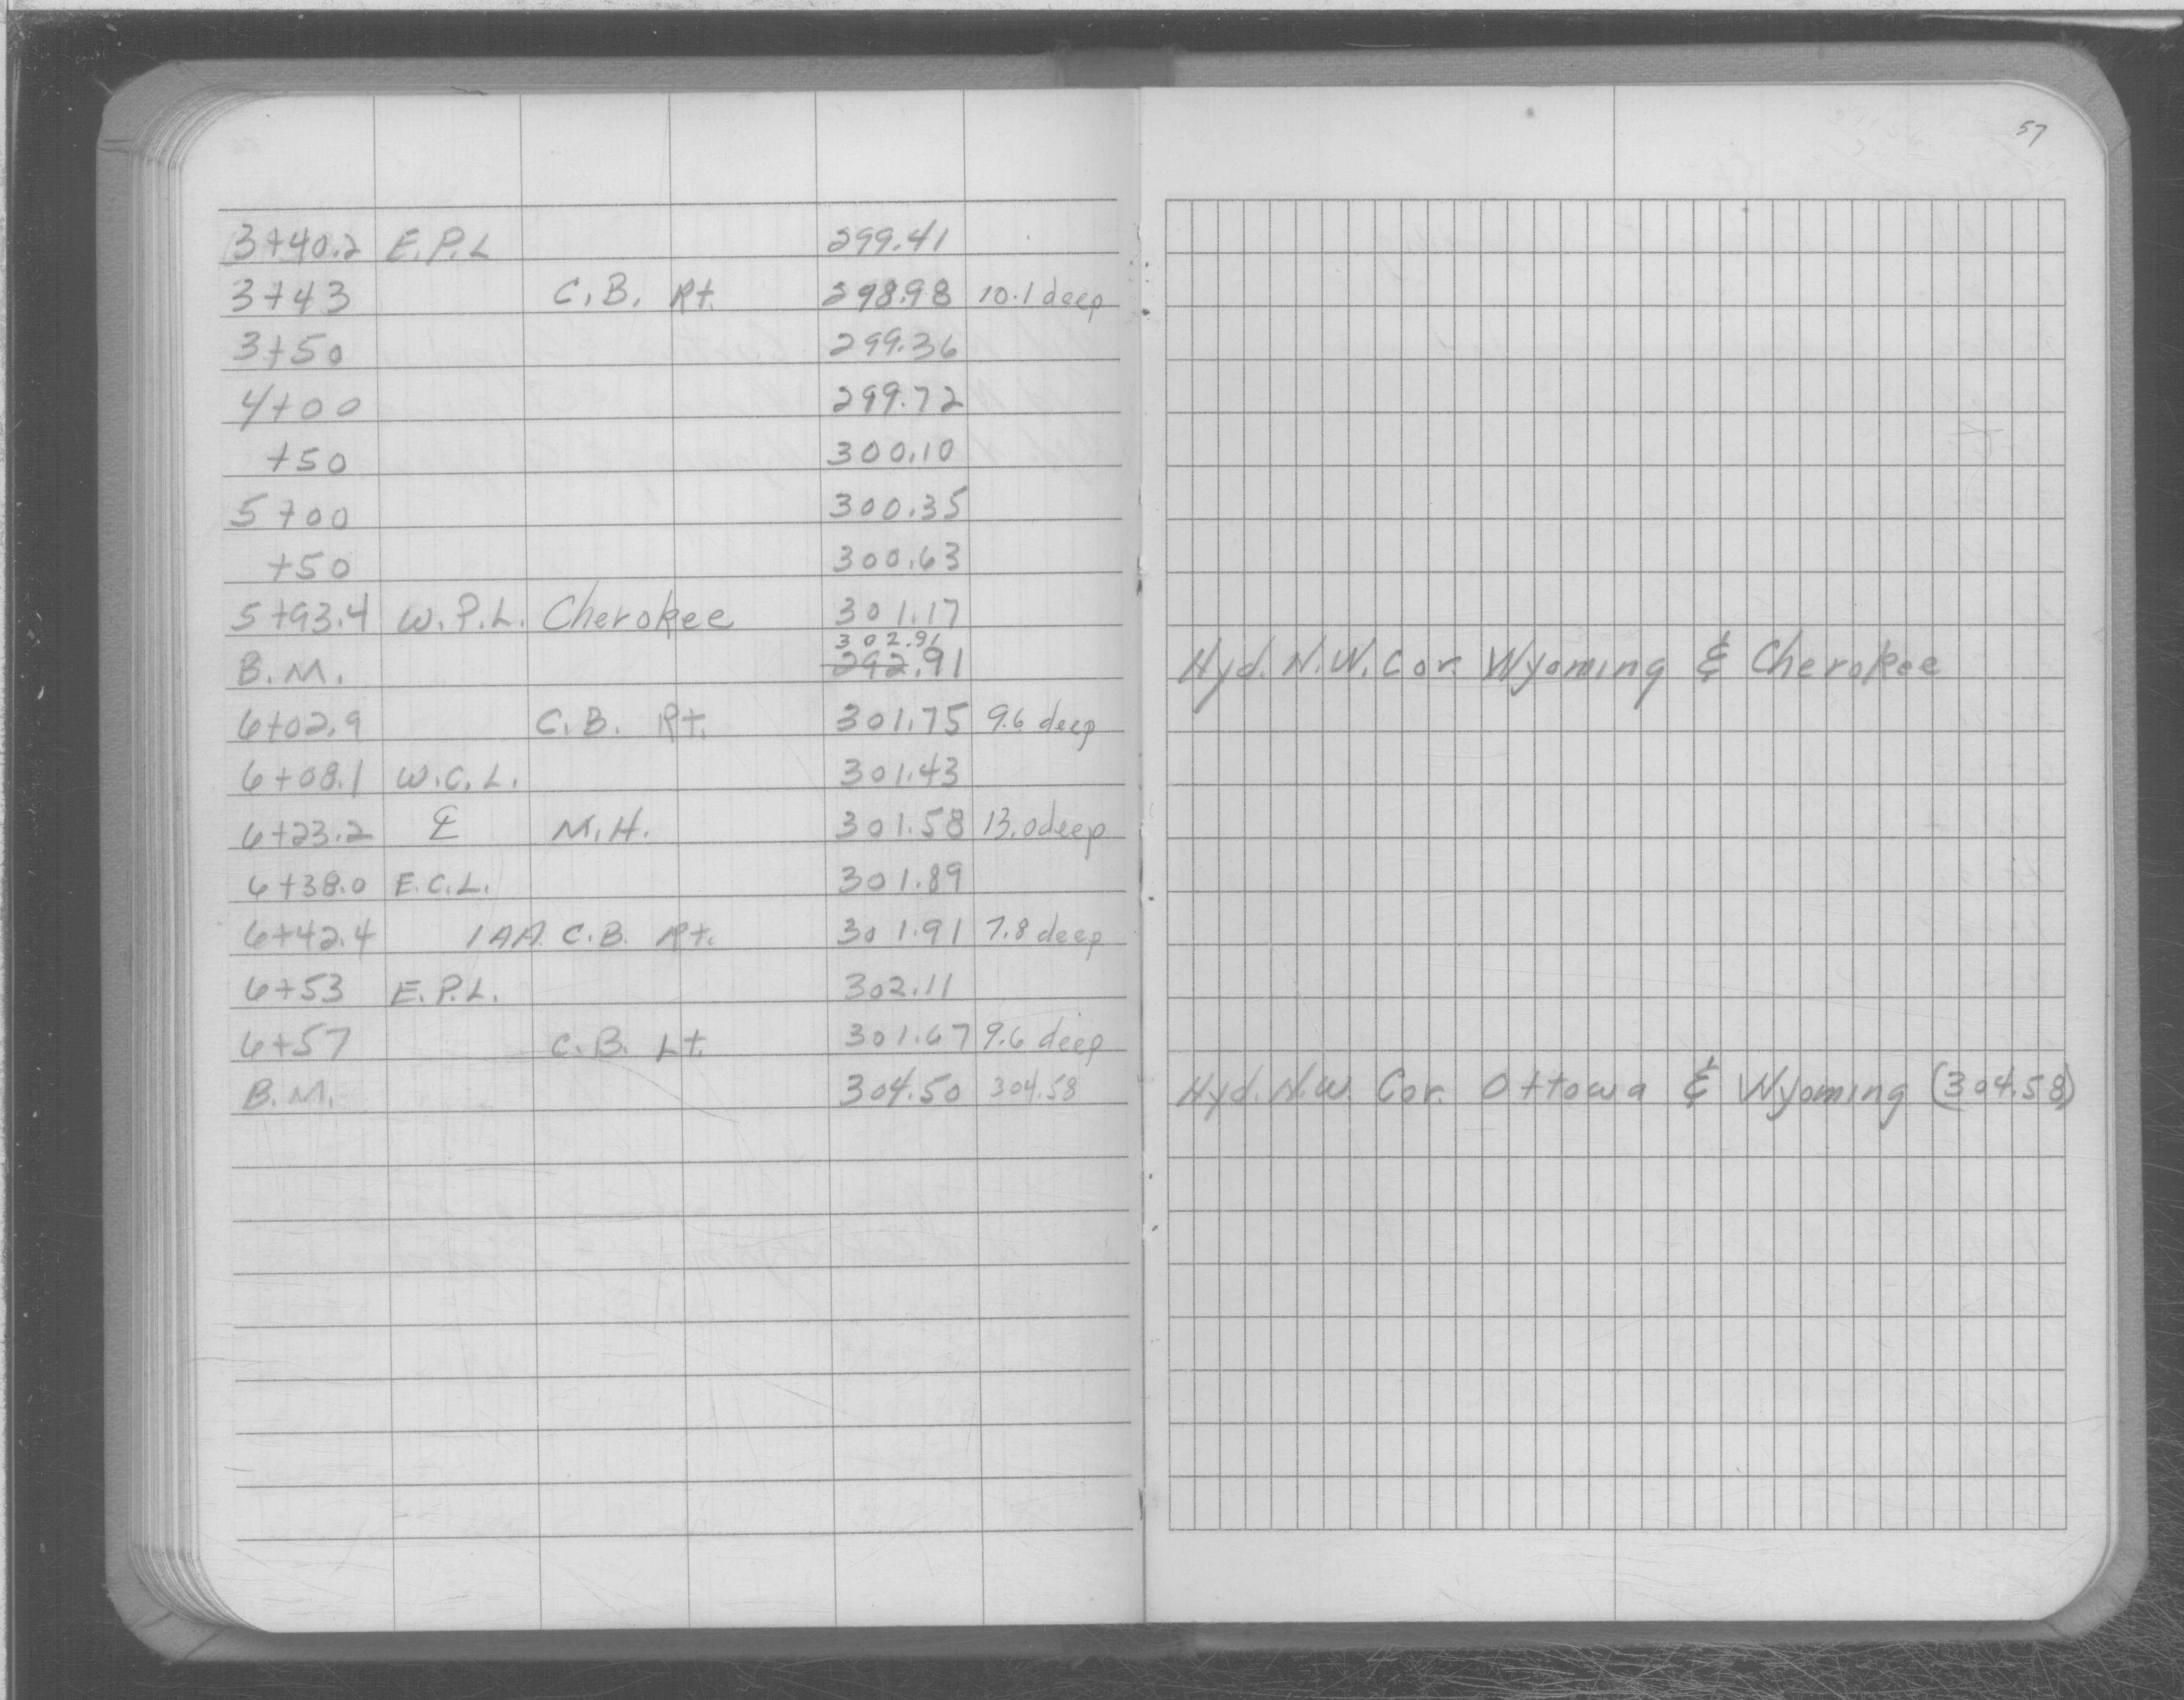 57
3+40.2 E.P.L 299.41
3+43 C.B. Rt. 298.98 10.1 deep
3+50 299.36
4+00 299.72
+50 300.10
5+00 300.35
+50 300.63
5+93.4 W.P.L. Cherokee 301.17
302.91
B.M. 292.91 Hyd. N.W. Cor. Wyoming & Cherokee
6+02.9 C.B. Rt. 301.75 9.6 deep
6+08.1 W.C.L. 301.43
6+23.2 ℄ M.H. 301.58 13.0 deep
6+38.0 E.C.L. 301.89
6+42.4 1AA C.B. Rt. 301.91 7.8 deep
6+53 E.P.L. 302.11
6+57 C.B. Lt. 301.67 9.6 deep
B.M. 304.50 304.58 Hyd. N.W. Cor. Ottowa & Wyoming (304.58)